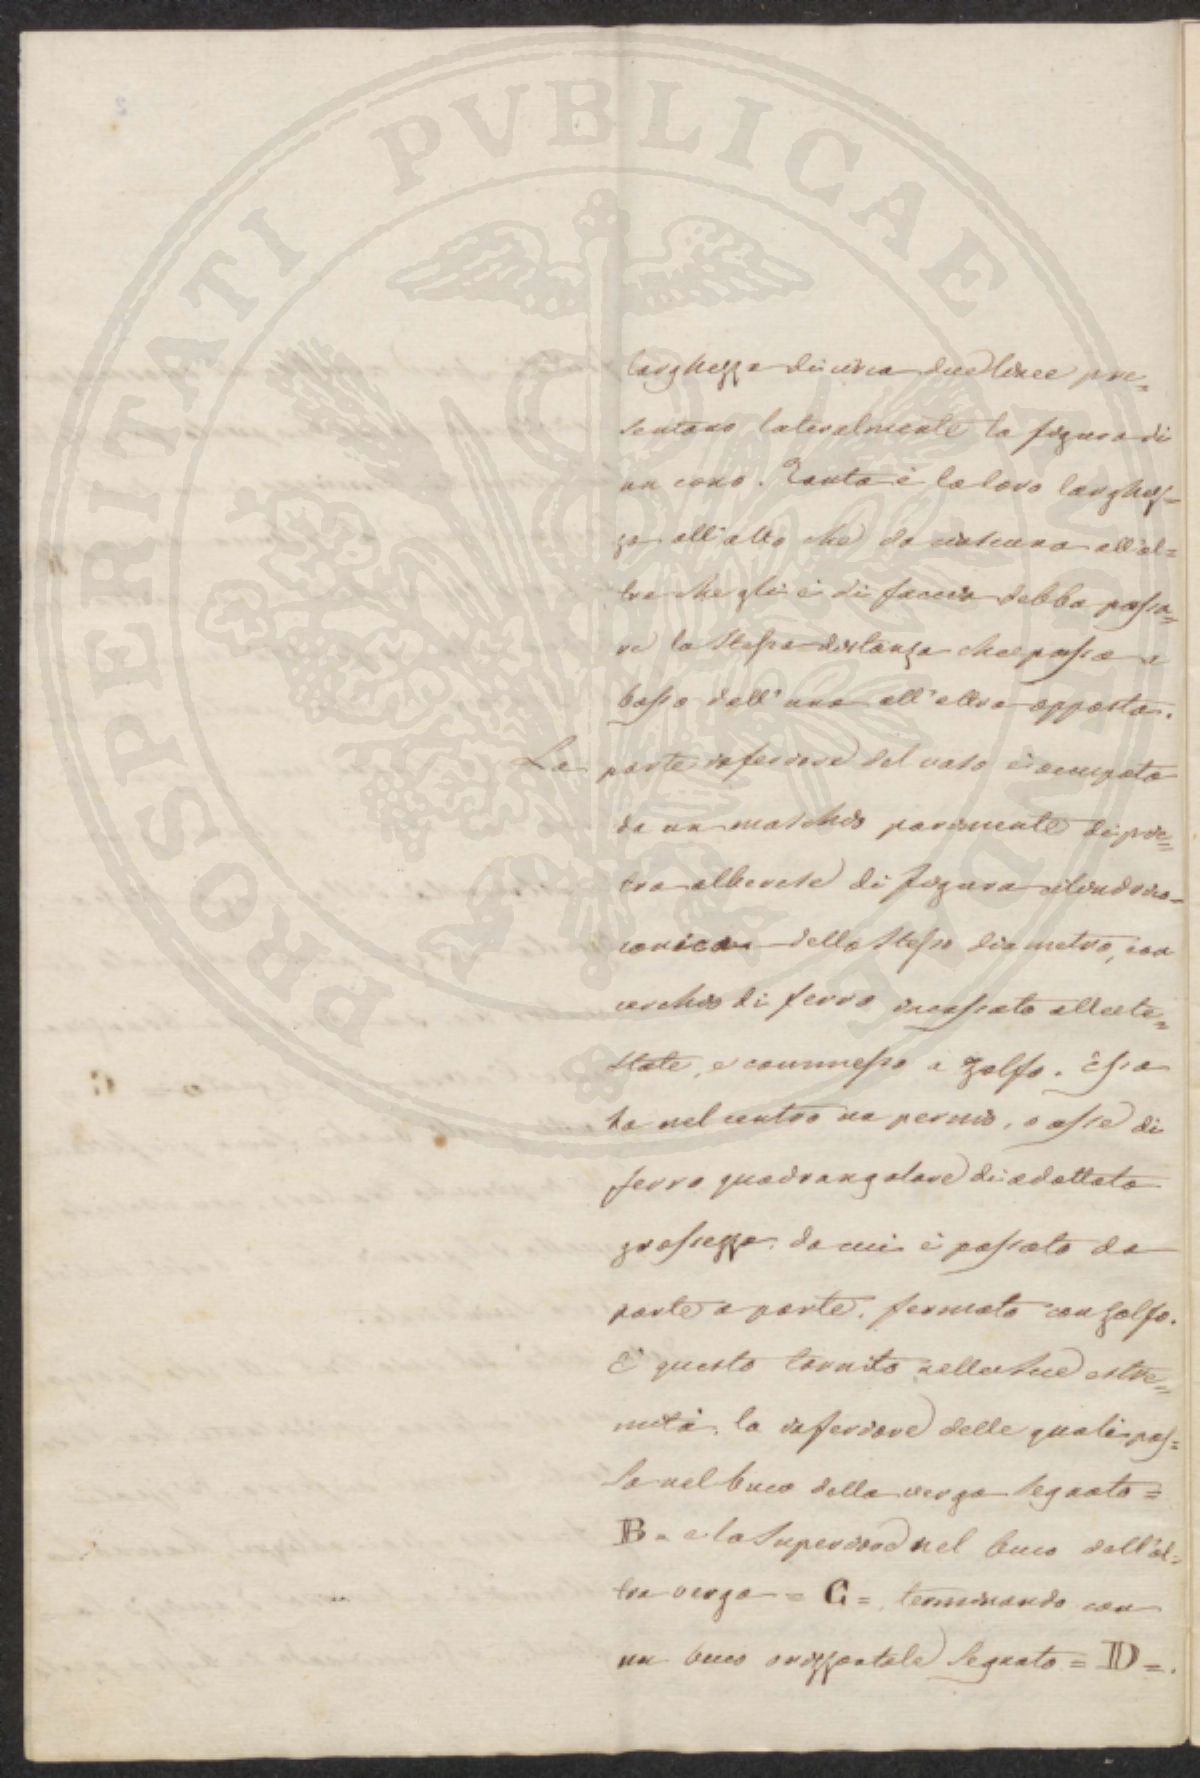 PROSPERITATI PVBLICAE
larghezza di circa due linee pre=
sentano lateralmente la figura di
un cono. Tanta è la loro larghez=
za all'alto che da ciascuna all'al=
tra che gli è di faccia debba passa=
re la stessa distanza che passa a
basso dall'una all'altra opposta.
La parte inferiore del vaso è occupata
da un maschio parimente di pie=
tra alberese di figura cilindrico=
conica dello stesso diametro, con
cerchio di ferro incassato alle te=
state, e commesso a zolfo. Esso
ha nel centro un pernio, o asse di
ferro quadrangolare di adattata
grossezza, da cui è passato da
parte a parte, fermato con zolfo.
È questo tornito nelle sue estre=
mità, la inferiore delle quali pos=
sa nel buco della verga segnato =
B = e la superiore nel buco dell'al=
tra verga = C =, terminando con
un buco orizzontale segnato = D =.